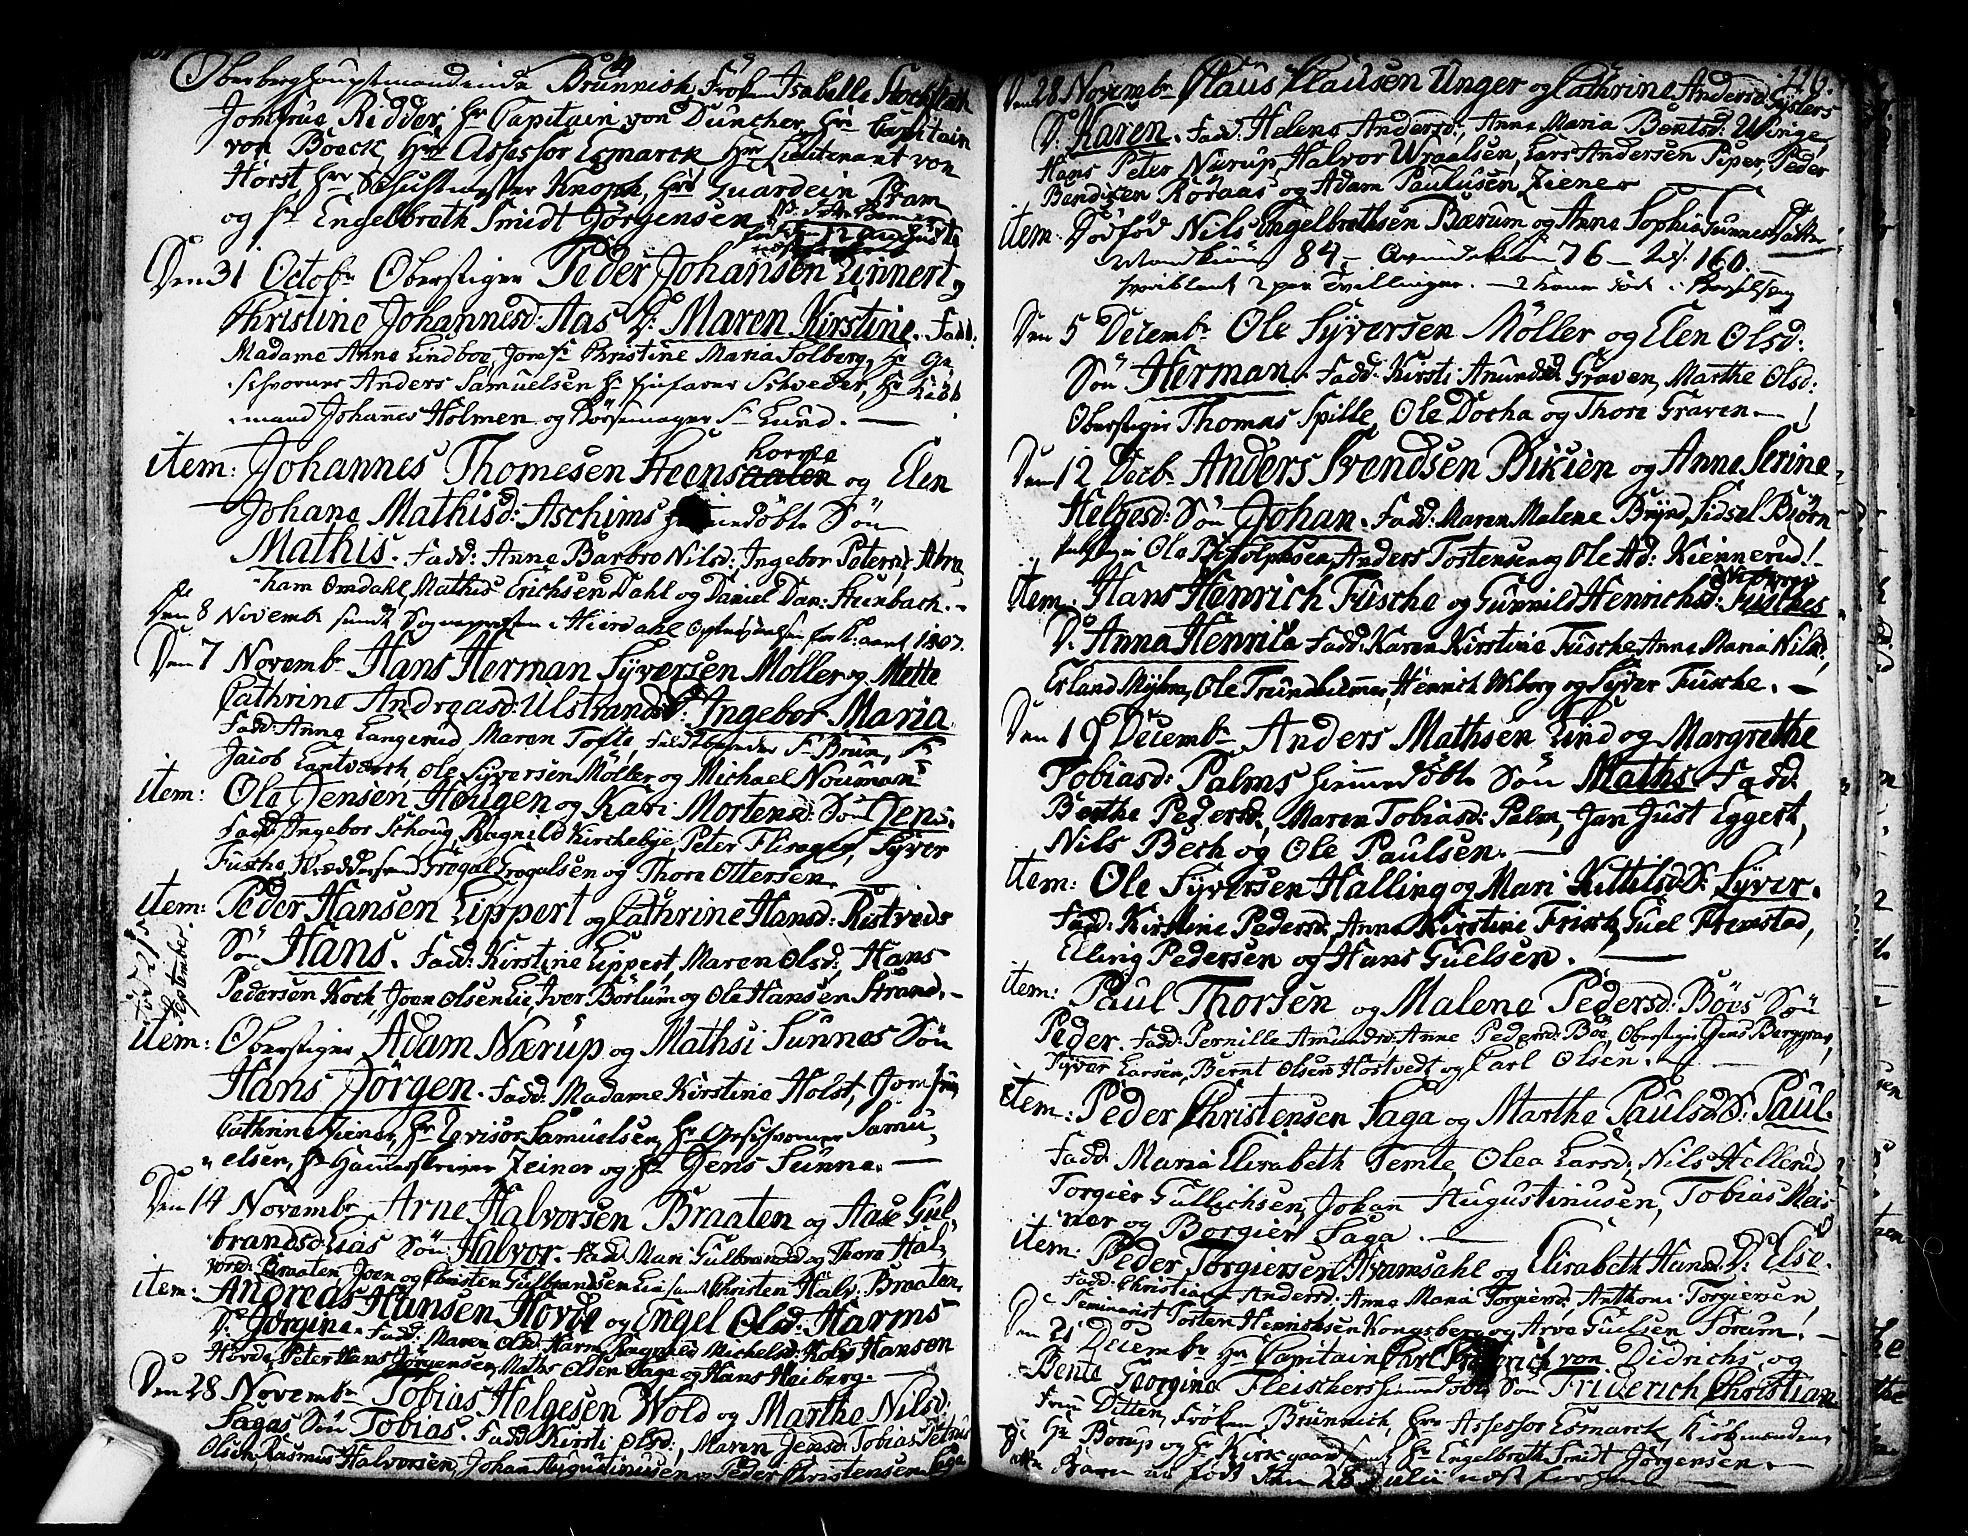 Oberberghauptmandinde Brünnich, Frøken Isabelle Stockfleth
Jomfrue Ridder, Hr Capitain von Düncher, Hr Capitain
von Boeck, Hr Assessor Esmarck, Hr Lieutenant von
Horst, Hr Knoph, Hr Guardein Bram
og Hr Engelbrath Smidt Jörgensen
Den 31 Octobr Oberstiger Peder Johansen Linnert og
Christine Johannesd: Aas D: Maren Kirstine. Fadd:
Madame Anne Lindboe, Jomfr Christine Maria Solberg, Hr Ge
schworner Anders Samuelsen Hr Schreder, Hr
mand Johannes Holmen og Lund.
item: Johannes Thomesen Steens og Elen
Johane Mathisd: Aschims hiemmedöbte Sön
Mathis. Fadd: Anne Barbro Nilsd: Ingebor Petersd, Abra
ham Omdahl, Mathis Erichsen Dahl og Daniel Dan: Steinbach.
Den 8 Novemb 1807.
Den 7 Novembr Hans Herman Syversen Möller og Mette
Cathrine Andreasd: Ulstrands D: Ingebor Maria
Fadd: Anne Langerud Maren Tofte, Brun, Hr
Jacob Lantwerch, Ole Syversen Möller og Michael Noumann
item: Ole Jensen Hougen og Kari Mortensd: Sön Jens.
Fadd: Ingebor Schoug Ragnild Kirchebye, Peter Syver
Fusche, Grogal Grogalsen og Thore Ottersen.
item: Peder Hansen Lippert og Cathrine Hansd: Ristveds
Sön Hans. Fadd: Kirstine Lippert, Maren Olsd, Hans
Pedersen Koch, Joen Olsen Lie, Iver Börlum og Ole Hansen Strand.
född 21 September.
item: Oberstiger Adam Nærup og Mathsi Sunnes Sön
Hans Jörgen. Fadd: Madame Kirstine Holst, Jomfru
Cathrine Ziener, Hr Samuelsen, Hr Samu
elsen, Hr Zeiner og Hr Jens Sunne.
Den 14 Novembr Arne Halvorsen Braaten og Aase Gul
brandsd: Lias Sön Halvor. Fadd: Mari Gulbrandsd og Thora Hal
vorsd: Braaten, Joen og Christen Gulbrandsen Lie samt Christen Halv: Braaten
item: Andreas Hansen Hovde og Engel Olsd: Harms
D: Jörgine. Fadd: Maren Olsd: Harm, Ragnild Michelsd: Kolb Hansen
Hovde, Peter Hans Jörgensen, Maths Olsen Sage og Hans Heiberg.
Den 28 Novembr Tobias Helgesen Wold og Marthe Nilsd:
Sagas Sön Tobias. Fadd: Kirsti Olsd:, Maren Jensd: Tobias Petrus
Olsen Rasmus Halvorsen, Johan Augustinusen og Peder Christensen Saga
116.
Den 28 Novembr Claus Clausen Unger og Cathrine Andersd Systers
D: Karen. Fadd: Helene Andersd:, Anne Maria Bentsd: Winge,
Hans Peter Nærup, Halvor Wraalsen, Lars Andersen Piper, Peder
Bendixen Roraas og Adam Paulusen Ziener
item: Dödfød Nils Engelbrethsen Bærum og Anne Sophie Sunnes Datter
Mandkiön 84 – Qvindekiön 76 – 160.
2 par Tvillinger.
Den 5 Decembr Ole Syversen Möller og Elen Olsd:
Sön Herman. Fadd: Kirsti Anundsd: Graven, Marthe Olsd:
Oberstiger Thomas Spille, Ole Docha og Thore Graven.
Den 12 Decbr Anders Svendsen Bikien og Anne Serine
Helgesd: Sön Johan. Fadd: Maren Malene Brynd, Sidsel Björn
Ole Anders Tostensen og Ole Ad: Kiennerud.
item: Hans Henrich Fusche og Gunnild Henrichsd: Fusches
D: Anna Henrica Fadd: Karen Kirstine Fusche Anne Maria Nilsd,
Erland Myhra, Ole Trundhiemmer, Henrich Wiborg og Syver Fusche.
Den 19 Decembr Anders Mathsen Lind og Margrethe
Tobiasd: Palms hiemmedöbte Sön Maths. Fadd:
Berthe Pedersd, Maren Tobiasd: Palm, Jan Just Eggert,
Nils Bech og Ole Paulsen.
item: Ole Syversen Halling og Mari Kittilsd: S: Syver.
Fadd: Kirstine Pedersd, Anne Kirstine Frisch, Guel Fremstad,
Elling Pedersen og Hans Guelsen.
item: Paul Thorsen og Malene Pedersd: Böes Sön
Peder. Fadd: Pernille Amundsd: Anne Pedersd: Böe, Oberstiger Jens Berggrav,
Syver Larsen, Bernt Olsen Hostvedt og Carl Olsen.
item: Peder Christensen Saga og Marthe Paulsd S: Paul.
Fadd: Maria Elisabeth Temte, Olea Larsd: Nils Hellerud
Torgier Gullichsen, Johan Augustinusen, Tobias Meis
ner og Borgier Saga.
item: Peder Torgiersen Hvamsahl og Elisabeth Hansd D: Else.
Fadd: Christian Andersd: Anne Maria Torgiersd: Anthoni Torgiersen,
Seminarist Tosten Henrichsen Kongsberg og Arve Guelsen Forum.
Den 21 Decembr Hr Capitain Carl Friderich von Didrichs og
Bente Georgine Fleischers hiemmedöbte Sön Friderich Christian
Frue Ditten, Frøken Brünnich, Hr Assessor Esmarck,
Hr Borup og Hr Kirkgaard Hr Engelbreth Smidt Jörgensen.
Barn født den 28 Julii